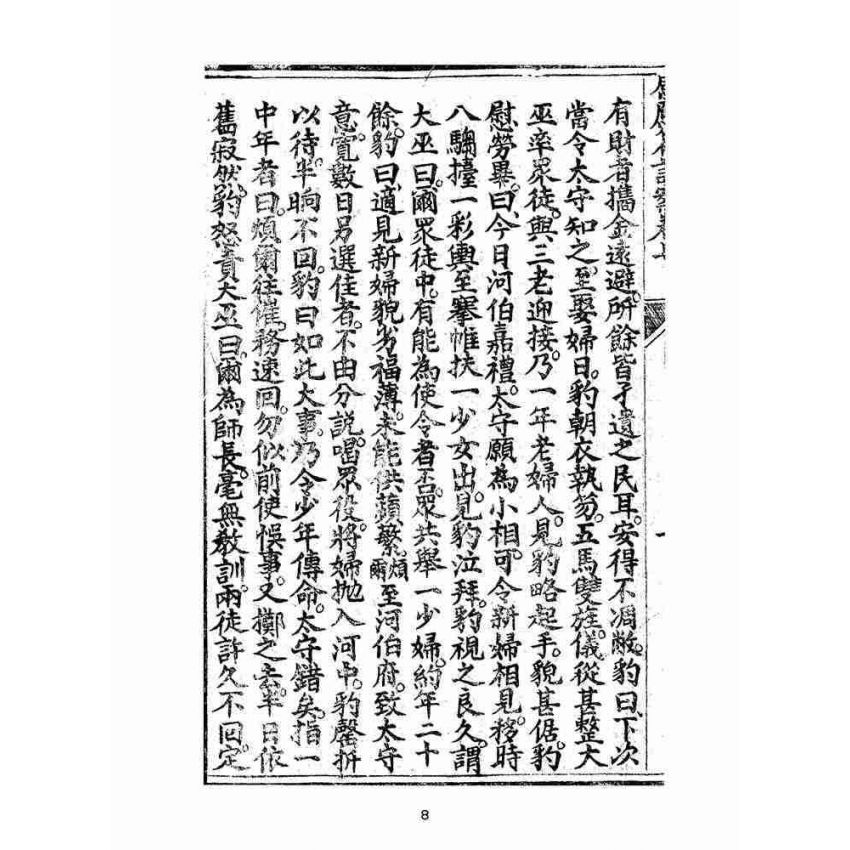 有財者攜金遠避。所餘皆孑遺之民耳。安得不凋敝。豹曰。下次
當令太守知之。至娶婦日。豹朝衣執笏。五馬雙旌。儀從甚整。大
巫率眾徒。與三老迎接。乃一年老婦人。見豹略起手。貌甚倨。豹
慰勞畢。曰。今日河伯嘉禮。太守願為小相。可令新婦相見。移時
八騶擡一彩輿至。搴帷扶一少女出。見豹泣拜。豹視之良久。謂
大巫曰。爾眾徒中。有能為使令者否。眾共舉一少婦。約年二十
餘。豹曰。適見新婦貌劣福薄。未能供蘋蘩。煩爾至河伯府。致太守
意。寬數日另選佳者。不由分說。喝眾役將婦拋入河中。豹罄折
以待。半晌不回。豹曰。如此大事。乃令少年傳命。太守錯矣。指一
中年者曰。煩爾往催。務速回。勿似前使悞事。又擲之去。半日依
舊寂然。豹怒責大巫曰。爾為師長。毫無教訓。兩徒許久不回。定
8